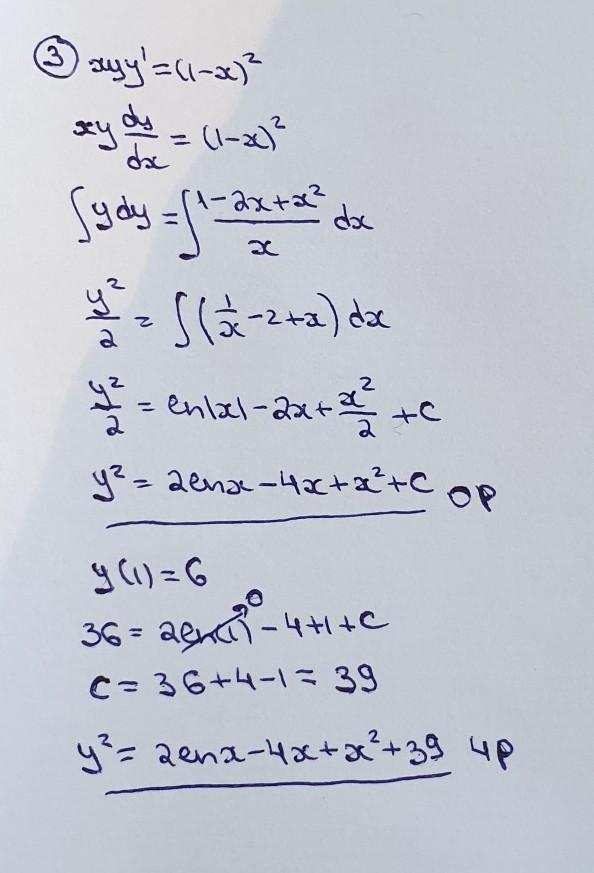 ③ xyy' = (1-x)²
xy dy/dx = (1-x)²
∫y dy = ∫ (1-2x+x²)/x dx
y²/2 = ∫(1/x - 2 + x) dx
y²/2 = ln|x| - 2x + x²/2 + C
y² = 2lnx - 4x + x² + C OP
y(1) = 6
36 = 2ln(1) 0 - 4 + 1 + C
C = 36 + 4 - 1 = 39
y² = 2lnx - 4x + x² + 39 ЧP